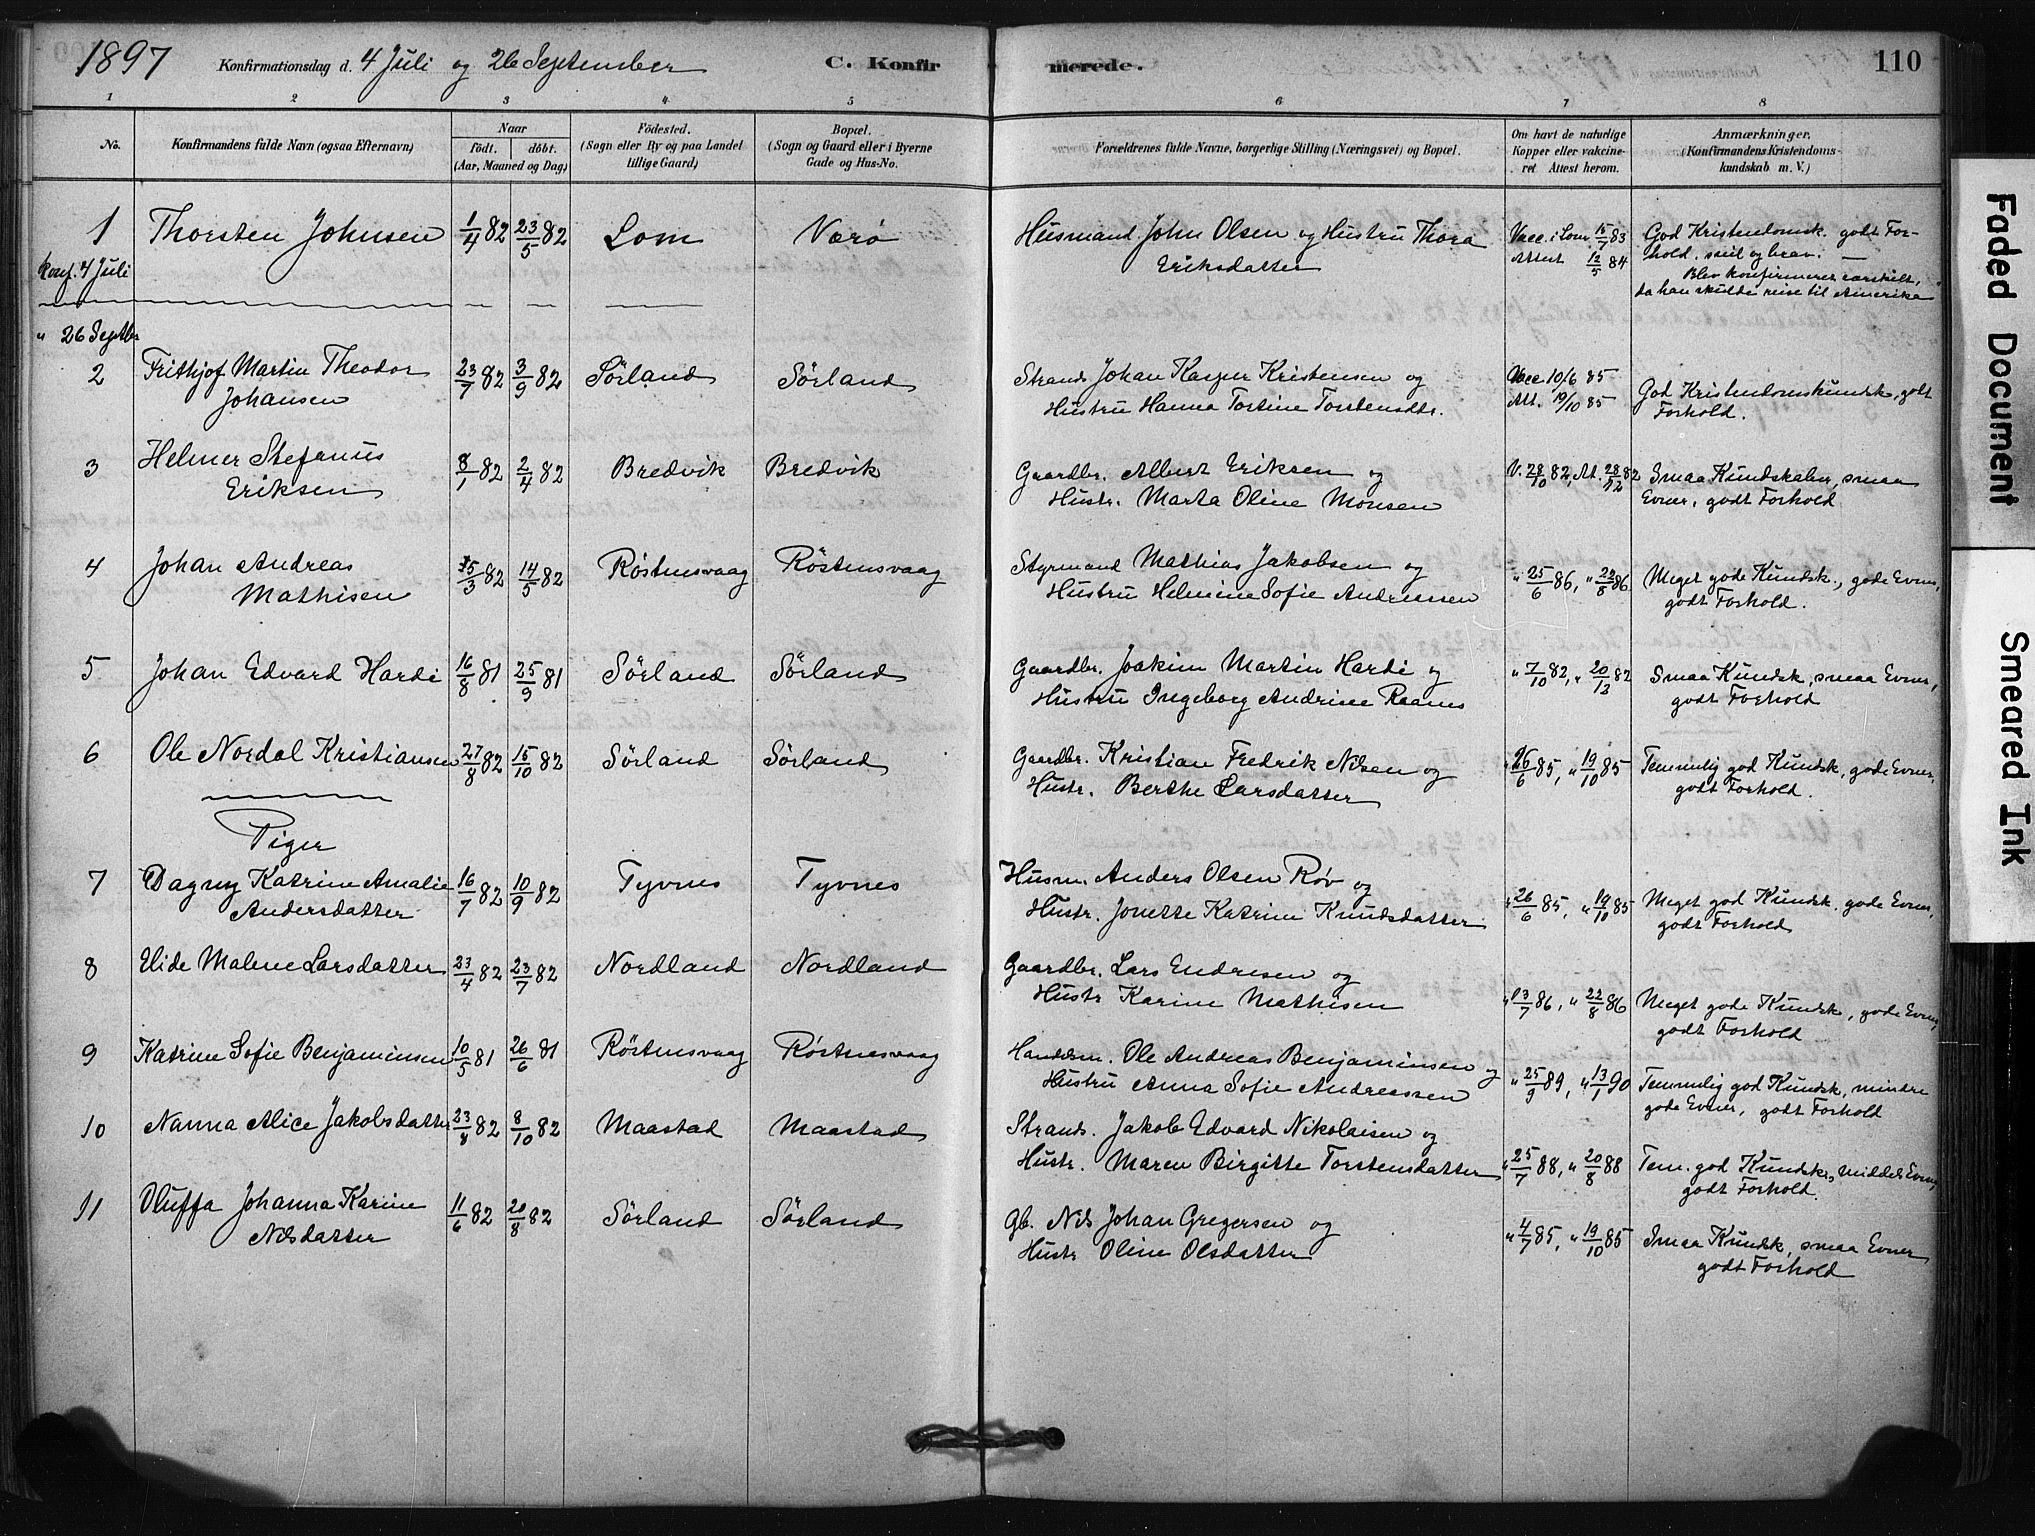 1897 Konfirmationsdag d. 4 Juli og 26 September C. Konfirmerede. 110
1 2 3 4 5 6 7 8
No. Konfirmandens fulde Navn (ogsaa Efternavn) Naar født. døbt. (Aar, Maaned og Dag) Födested. (Sogn eller By og paa Landet tillige Gaard) Bopæl. (Sogn og Gaard eller i Byerne Gade og Hus-No. Forældrenes fulde Navne, borgerlige Stilling (Næringsvei) og Bopæl. Om havt de naturlige Kopper eller vakcineret Attest herom. Anmærkninger. (Konfirmandens Kristendomskundskab m. V.)
1 Thorsten Johnsen 1/4 82 23/5 82 Lom Værö Husmand John Olsen og Hustru Thora Vacc. i Lom 15/7 83 God Kristendomsk. godt For-
Eriksdatter Attest 12/5 84 hold. snil og brav. —
konf. 4 Juli Blev konfirmeret særskilt,
da han skulde reise til Amerika
" 26 Septbr
2 Frithjof Martin Theodor 23/7 82 3/9 82 Sörland Sörland Strands. Johan Kasper Kristensen og Vacc 10/6 85 God Kristendomskundsk, godt
Johansen Hustru Hanna Tostine Torstensdtr. Att. 19/10 85 Forhold.
3 Helmer Stefanus 8/1 82 2/4 82 Bredvik Bredvik Gaardbr. Albert Eriksen og V. 28/10 82, At. 28/12 82 Smaa Kundskaber, smaa
Eriksen Hustr. Marta Oline Monsen Evner, godt Forhold
4 Johan Andreas 15/3 82 14/5 82 Röstnesvaag Röstnesvaag Styrmand Mathias Jakobsen og " 25/6 86, " 22/8 86 Meget gode Kundsk., gode Evner,
Mathisen Hustru Helmine Sofie Andreassen godt Forhold.
5 Johan Edvard Hardi 16/8 81 25/9 81 Sörland Sörland Gaardbr. Joakim Martin Hardi og " 7/10 82, " 20/12 82 Smaa Kundsk, smaa Evner,
Hustru Ingeborg Andrine Raanes godt Forhold
6 Ole Nordal Kristiansen 27/8 82 15/10 82 Sörland Sörland Gaardbr. Kristian Fredrik Nilsen og " 26/6 85, " 19/10 85 Temmelig god Kundsk, gode Evner,
Hustr. Berthe Larsdatter godt Forhold.
Piger
7 Dagny Katrine Amalie 16/7 82 10/9 82 Tyvnes Tyvnes Husm. Anders Olsen Röv og " 26/6 85, " 19/10 85 Meget god Kundsk. gode Evner,
Andersdatter Hustr. Jonette Katrine Knudsdatter godt Forhold
8 Elide Malene Larsdatter 23/4 82 23/7 82 Nordland Nordland Gaardbr. Lars Endresen og " 13/7 86, " 22/8 86 Meget gode Kundsk, gode Evner,
Hustr Karine Mathisen godt Forhold
9 Katrine Sofie Benjaminsen 10/5 81 26/6 81 Röstnesvaag Röstnesvaag Handelsm. Ole Andreas Benjaminsen og " 25/9 89, " 13/1 90 Temmelig god Kundsk, mindre
Hustru Anna Sofie Andreassen gode Evner, godt Forhold
10 Nanna Alice Jakobsdatter 23/8 82 8/10 82 Maastad Maastad Strands. Jakob Edvard Nikolaisen og " 25/7 88, " 20/8 88 Tem. god Kundsk, middels Evner,
Hustr. Maren Birgitte Torstensdatter godt Forhold.
11 Oluffa Johanna Karine 11/6 82 20/8 82 Sörland Sörland Gb. Nils Johan Gregersen og " 4/7 85, " 19/10 85 Smaa Kundsk, smaa Evner
Nilsdatter Hustr Oline Olsdatter godt Forhold
Faded Document
Smeared Ink